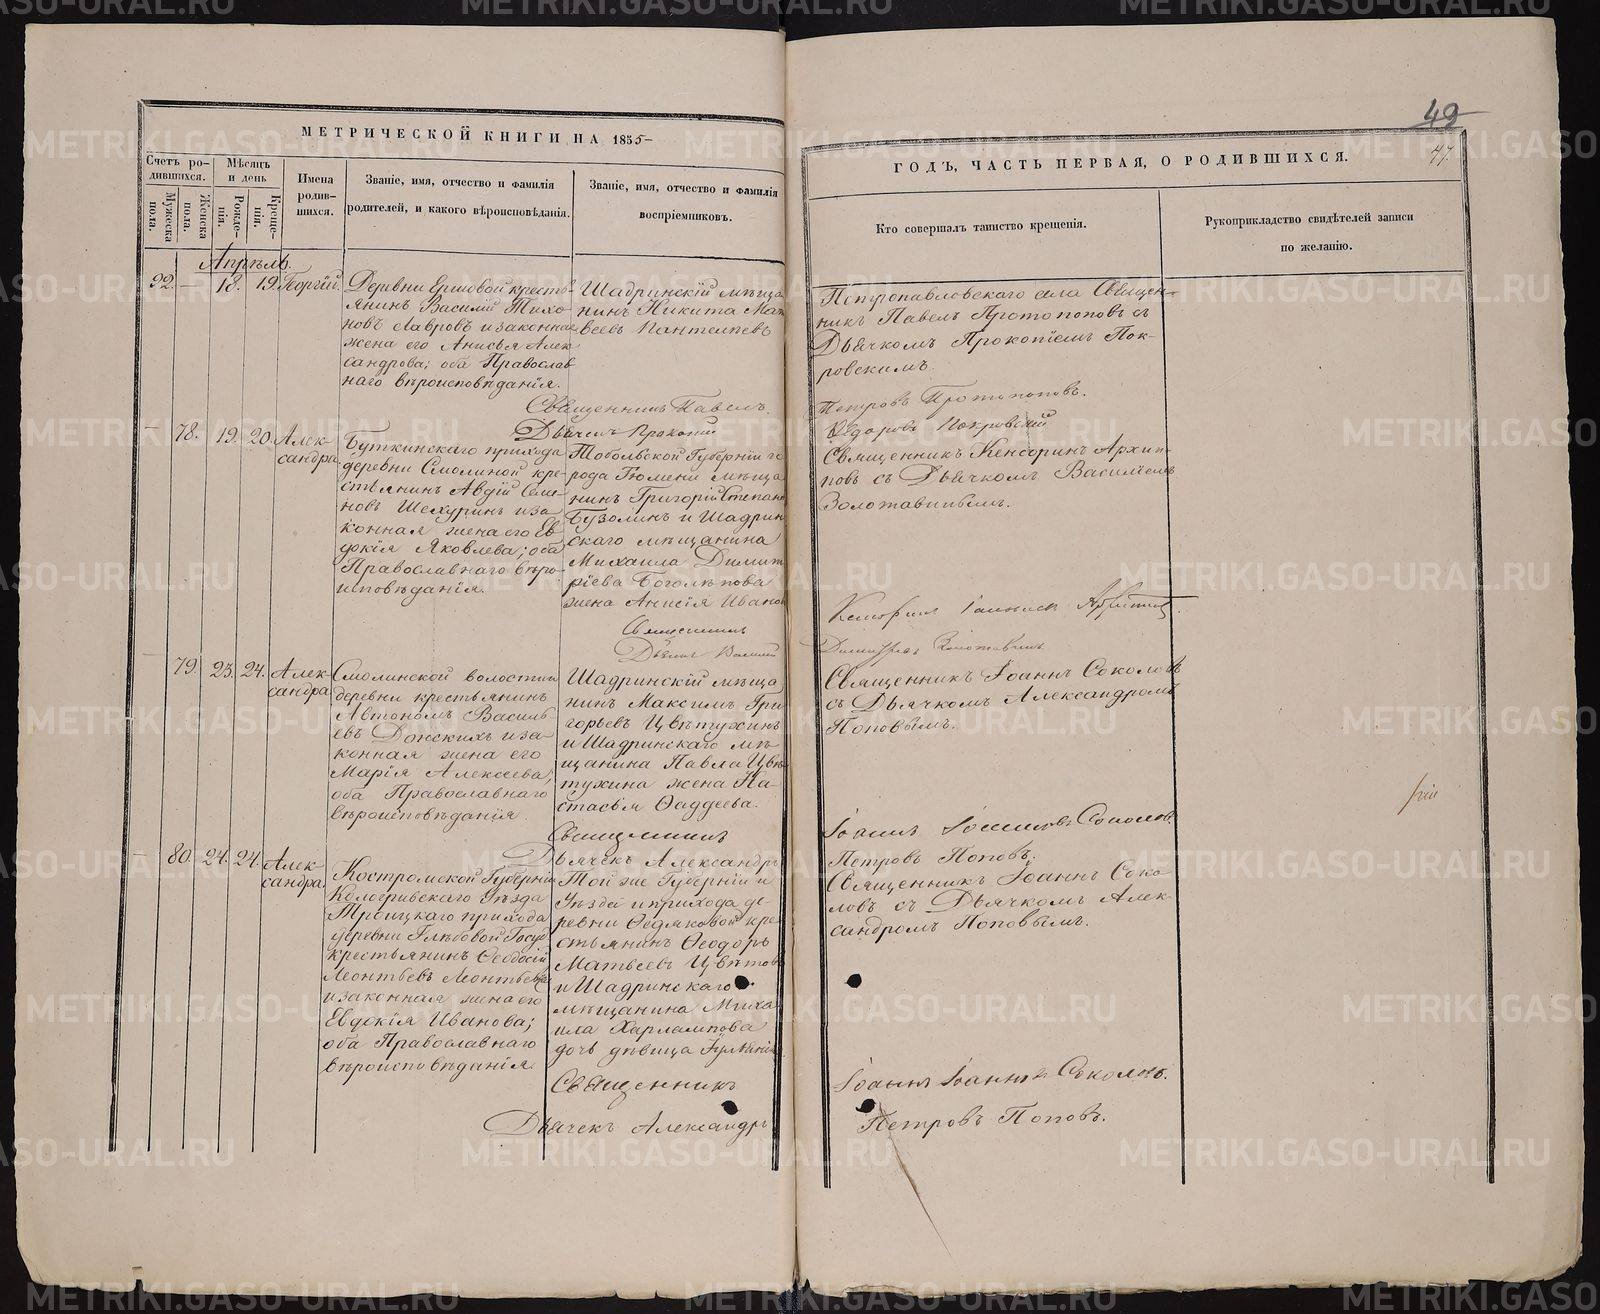 МЕТРИЧЕСКОЙ КНИГИ НА 1855
Счетъ ро-
дившихся.
Мѣсяцъ
и день
Мужеска
пола.
Женска
пола.
Рожде-
нія.
Креще-
нія.
Имена
родив-
шихся.
Званіе, имя, отчество и фамилія
родителей, и какого вѣроисповѣданія.
Званіе, имя, отчество и фамилія
воспріемниковъ.
Апрѣль.
92.
18.
19.
Георгій.
Деревни Ершовой кресть
янинъ Василій Тихо
новъ Лавровъ и законная
жена его Анисья Алек
сандрова; оба Православ
наго вѣроисповѣданія.
Шадринскій мѣща
нинъ Никита Мат
веевъ Пантелѣевъ
Священникъ Павелъ
Дьячекъ Прокопій
78.
19.
20.
Алек-
сандра
Буткинскаго прихода
деревни Смолиной кре-
стьянинъ Авдій Семе
новъ Шехуринъ и за
конная жена его Ев
докія Яковлева; оба
Православнаго вѣро
исповѣданія.
Тобольской Губерніи го
рода Тюмени мѣща
нинъ Григорій Степано
Бузолинъ и Шадрин
скаго мѣщанина
Михаила Димит
ріева Боголѣпова
жена Анисія Иванов
Священникъ
Дьячекъ Василій
79.
23.
24.
Алек-
сандра
Смолинской волости
деревни крестьянинъ
Автономъ Василь
евъ Донскихъ и за-
конная жена его
Марія Алексеева;
оба Православнаго
вѣроисповѣданія.
Шадринскій мѣща
нинъ Максимъ Гри
горьевъ Цвѣтухинъ
и Шадринскаго мѣ
щанина Павла Цвѣ
тухина жена На-
стасья Фаддеева.
Священникъ
Дьячекъ Александръ
80.
24.
24.
Алек-
сандра.
Костромской Губерніи
Кологривскаго Уѣзда
Троицкаго прихода
деревни Глѣбовой Госуд
крестьянинъ Ѳеодосій
Леонтьевъ Леонтьевъ
и законная жена его
Евдокія Иванова;
оба Православнаго
вѣроисповѣданія.
Той же Губерніи и
Уѣзда и прихода де-
ревни Ѳедяковой кре
стьянинъ Ѳеодоръ
Матвеевъ Цвѣтовъ
и Шадринскаго
мѣщанина Миха
ила Харлампова
дочь дѣвица
Священникъ
Дьячекъ Александръ
49
47.
ГОДЪ, ЧАСТЬ ПЕРВАЯ, О РОДИВШИХСЯ.
Кто совершалъ таинство крещенія.
Рукоприкладство свидѣтелей записи
по желанію.
Петропавловскаго села Священ-
никъ Павелъ Протопоповъ съ
Дьячкомъ Прокопіемъ Пок-
ровскимъ.
Петровъ Протопоповъ.
Ѳедоровъ Покровскій
Священникъ Кенсоринъ Архип-
повъ съ Дьячкомъ Василіемъ
Золотавинымъ.
Кенсоринъ
Золотавинъ
Священникъ Іоаннъ Соколовъ
съ Дьячкомъ Александромъ
Поповымъ.
Іоаннъ Іоанновъ Соколовъ.
Петровъ Поповъ.
Священникъ Іоаннъ Соко
ловъ съ Дьячкомъ Алек-
сандромъ Поповымъ.
Іоаннъ Іоанновъ Соколовъ.
Петровъ Поповъ.
METRIKI.GASO-URAL.RU